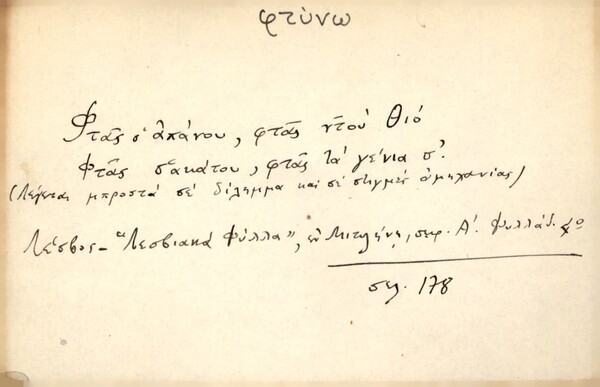 φτύνω
Φτᾶς σ' ἀπάνου, φτᾶς ντοὺ Θιό
Φτᾶς σ' ἀκάτου, φτᾶς τὰ γένια σ'.
(Λέγεται μπροστά σέ δίλημμα καί σέ στιγμές ἀμηχανίας)
Λέσβος - "Λεσβιακά Φύλλα", ἐν Μιτυλήνῃ, σειρ. Α'. φυλλάδ. 4ο
σελ. 178